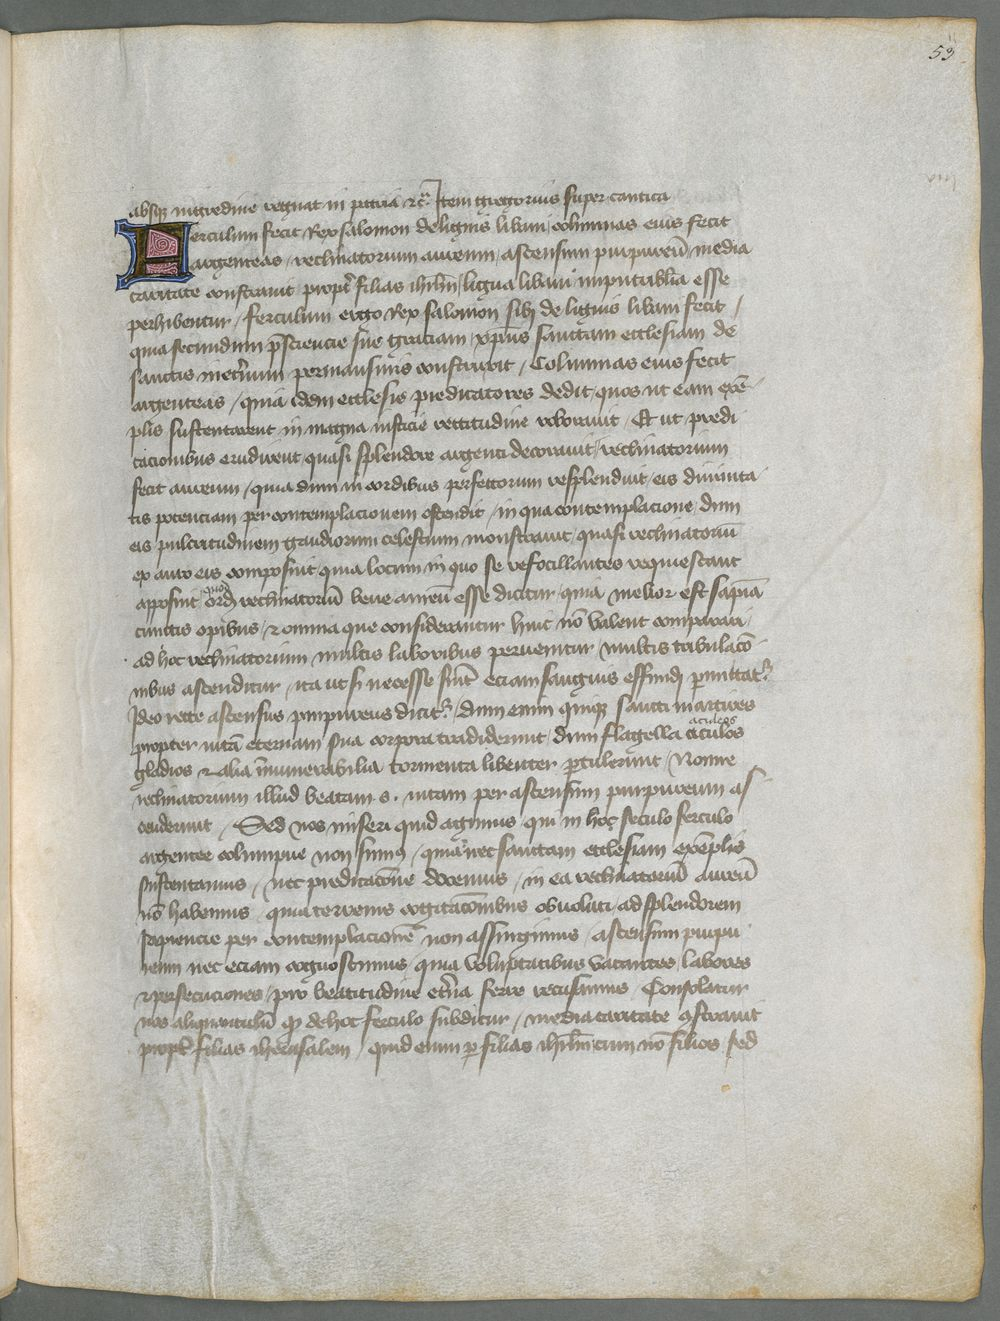 53
absqꝫ nigredine regnat in patria ⁊cͣ. Item gregorius super cantica
Ferculum fecit Rex salomon de lignis libani columnas eius fecit
argenteas / reclinatorium aureum / ascensum purpureū / media
caritate constrauit propt̄ filias ihrl̄m / ligna libani imputribīlia esse
perhibentur / Ferculum ergo Rex salomon sibi de lignis libani fecit /
quia secundum p̄sciencie sue graciam / xp̄us sanctam ecclesiam de
sanctis mencium permansuris construxit / Columnas eius fecit
argenteas / quia idem ecclesie predicatores dedit / quos ut eam exē
plis sustentarent in magna iusticie rectitudine roborauit / Et ut predi
cacionibus erudirent quasi splendore argenti decorauit / reclinatorium
fecit aureum / quia dum in cordibus perfectorum resplenduit / eis diuinita
tis potenciam per contemplacionem ostendit / in qua contemplacione / dum
eis pulcritudinem gaudiorum celestium monstrauit / quasi reclinatoriū
ex auro eis composuit / quia locum in quo se refocillantes requiescant
apposuit / quod reclinatoriū bene aureū esse dicitur / quia melior est sapiā
cunctis opibus / ⁊ omnia que considerantur huic nō valent comparari /
ad hoc reclinatorium multis laboribus peruenitur / multis tribulacō
nibus ascenditur / ita ut si necesse fūit eciam sanguis effundi permittatᷣ
Ideo recte ascensus purpureus dicitᷣ / dum enim quiqꝫ sancti martires
propter uitā eternam sua corpora tradiderunt / dum flagella aculeos
gladios ⁊ alia īnumerabilia tormenta libenter pertulerunt / Nonne
reclinatorium illud beatam .s. uitam per ascensum purpureum as
cenderunt / Sed nos miseri quid agimus / qui in hoc seculo ferculo
argentee columpne non sumꝯ / quia nec sanctam ecclesiam exēplis
sustentamus / nec predicacōne docemus / in ea reclinatoriū aureū
nō habemus / quia terrenis cogitacōnibus obuoluti / ad splendorem
sapiencie per contemplacionē non assurgimus / ascensum purpu
reum nec eciam cognoscimus / quia voluptatibus vacantes labores
⁊ persecuciones / pro beatitudine etn̄a ferre recusamus / Consolatur
nos aliquantulū qꝫ de hoc ferculo subditur / media caritate ꝯstrauit
propt̄ filias iherusalem / quid enim per filias ihrl̄m cum nō filios / sed